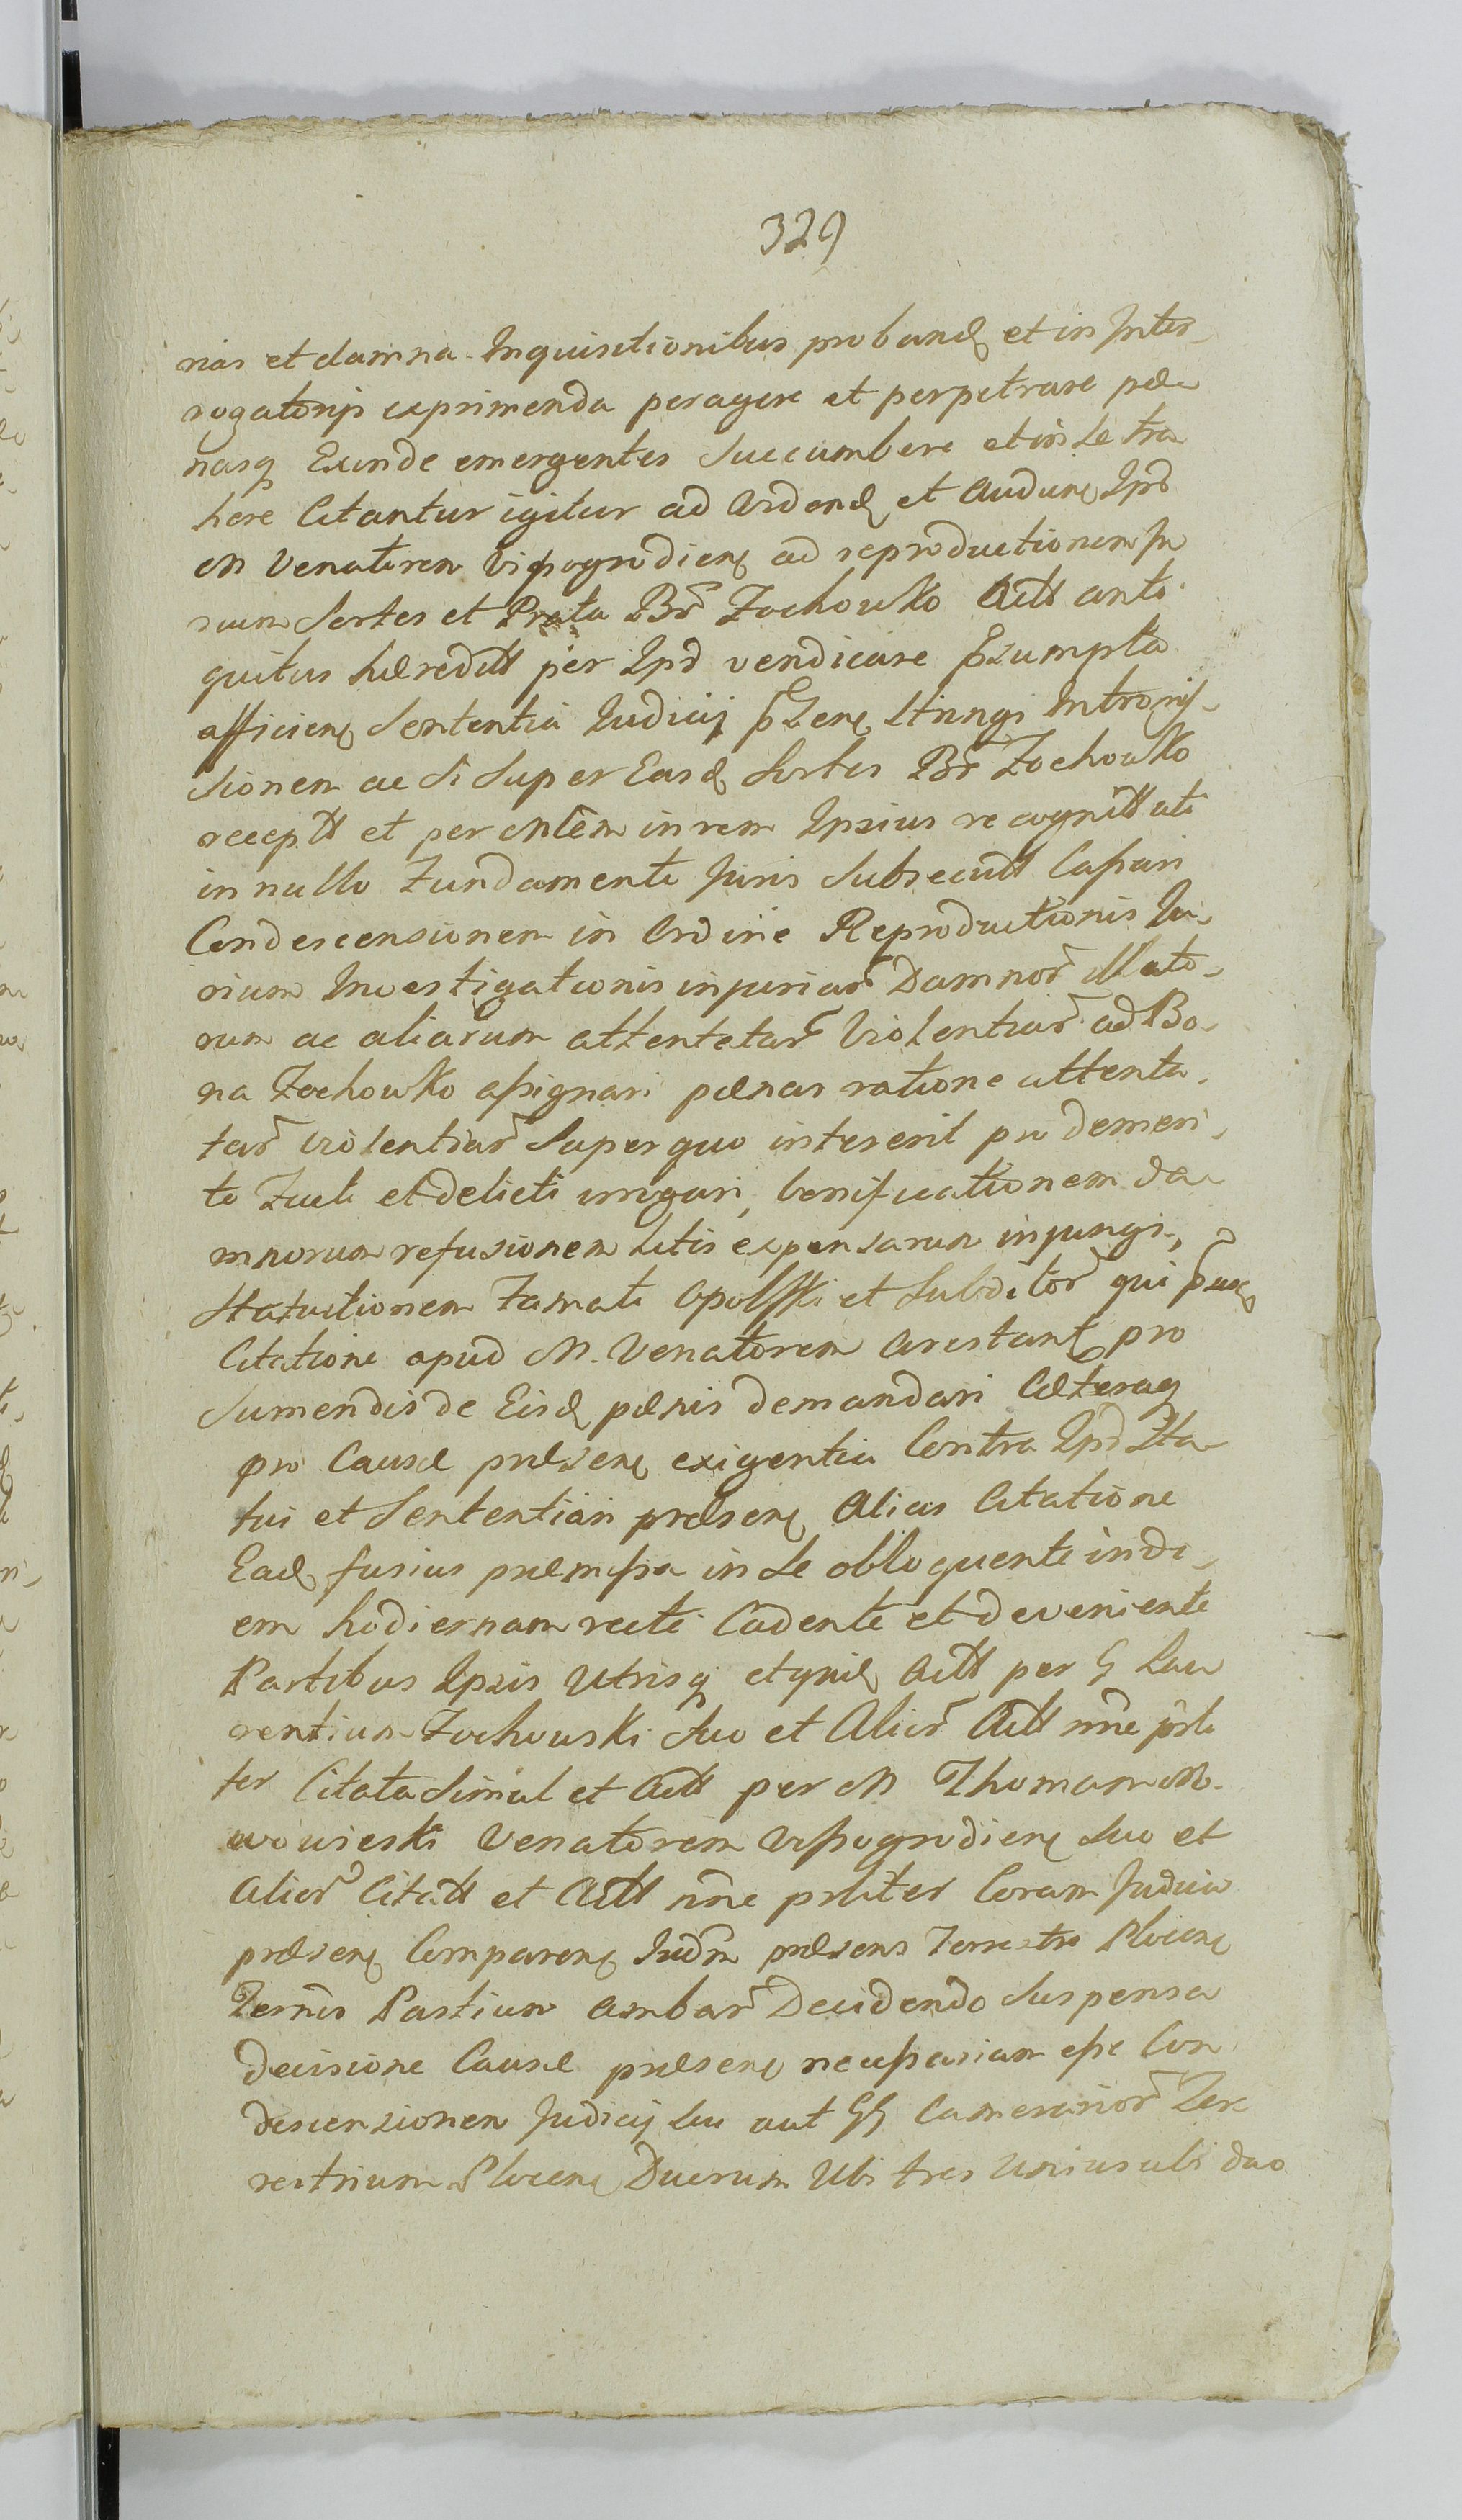 329
rias et damna Inquisitionibus proband et in Inter-
rogatorijs exprimenda peragere et perpetrare pæ-
nasq Exinde emergentes succumbere et in se tra
here Citantur igitur ad Videnđ et Audienđ Ipđ
M Venatorem Vissogrodienę ad reproductionem Ju
rium Sortes et Prata Br Zochowko Actt anti
quitus hæreditt per Ipđ vendicare
afficienę Sententia Judicij stringi Intromis-
sionem ac si super Easđ Sortes Br Zochowko
receptt et per in rem Ipsius recognitt uti
in nullo Fundamento Juris Subsecutt Cassari
Condescensionem in Ordine Reproductionis Ju-
rium Investigationis injuriar Damnor Illato-
rum ac aliarum attentatar Violentiar ad Bo-
na Zochowko assignari pænas ratione attenta-
tar violentiar super quo intererit pro demeri-
to Facti et delicti irrogari, bonificationem da-
mnorum refusionem Litis expensarum injungi,
Statuitionem Famati Opolski et Subditor qui
Citatione apud M. Venatorem arestant pro
sumendis de Eisđ pænis demandari Cæteraq
pro Causæ præsenę exigentia Contra Ipđ Sta-
tui et Sententiari præsenę Alias Citatione
Eađ fusius præmissa in se obloquente in di-
em hodiernam recte Cadente et deveniente
Partibus Ipsis Utrisq etquiđ Actt per G Lau
rentium Zochowski suo et Alior Actt nne prli
ter Citata simul et Actt per M Thomam M-
owieski Venatorem Vissogrodienę suo et
Alior Citatt et Actt nne prliter Coram Judicio
præsenę Comparenę Judm præsens Terrestre Plocenę
Ternis Partium Ambar Decidendo suspensa
decisione Causæ præsenę necessariam esse Con
descensionem Judicij sui aut GG Camerarior Ter
restrium Plocenę Duorum Ubi tres Unius ubi duo